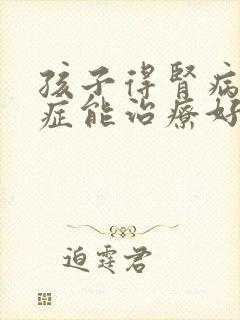 孩子得肾病
症能治疗好
迫霆君